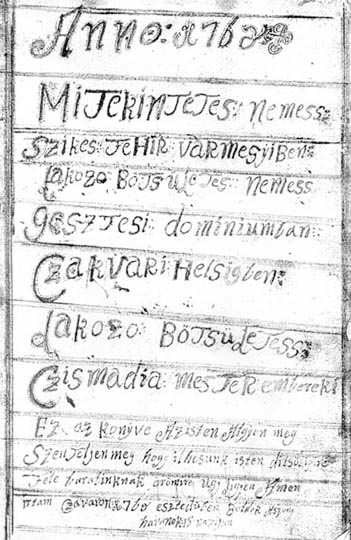 Anno: 1762
Mi Tekintetes: Nemess:
Szikes: Tehir: varmegyiben:
Lakozo Bötsületes: Nemess
gesztesi dominiumban:
Czakvari Helsigben:
Lakozo: Bötsületess:
Czismadia: mester embereki
Ez az könyve Azisten Algyen meg
Szentellyen meg hogy ilhesünk isten
Fele baratinknak örömire ugy legyen Amen
Irtam Cavaron 1760 esztedöben Boldok Aszony
havanak